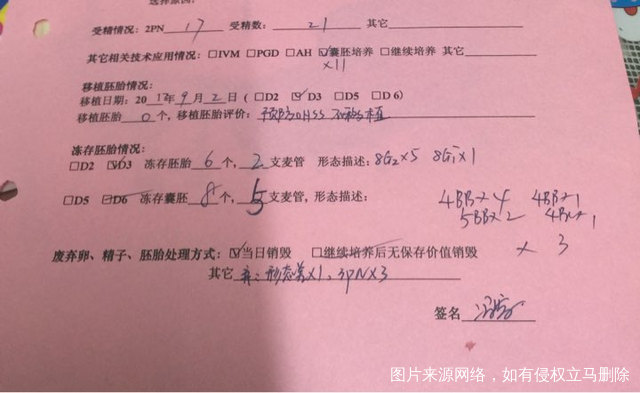 受精情况：2PN 17 受精数：21 其它
其它相关技术应用情况：□IVM □PGD □AH ☑囊胚培养 □继续培养 其它
×11
移植胚胎情况：
移植日期：2017年9月2日（□D2 ☑D3 □D5 □D6）
移植胚胎 0 个，移植胚胎评价：预防OHSS 不移植
冻存胚胎情况：
□D2 ☑D3 冻存胚胎 6 个，2 支麦管 形态描述：8G2×5 8G1×1
□D5 ☑D6 冻存囊胚 8 个，5 支麦管，形态描述：4BB×4 4BB×1
5BB×2 ×1
× 3
废弃卵、精子、胚胎处理方式：☑当日销毁 □继续培养后无保存价值销毁
其它 弃：形态差×1，3PN×3
签名
图片来源网络，如有侵权立马删除